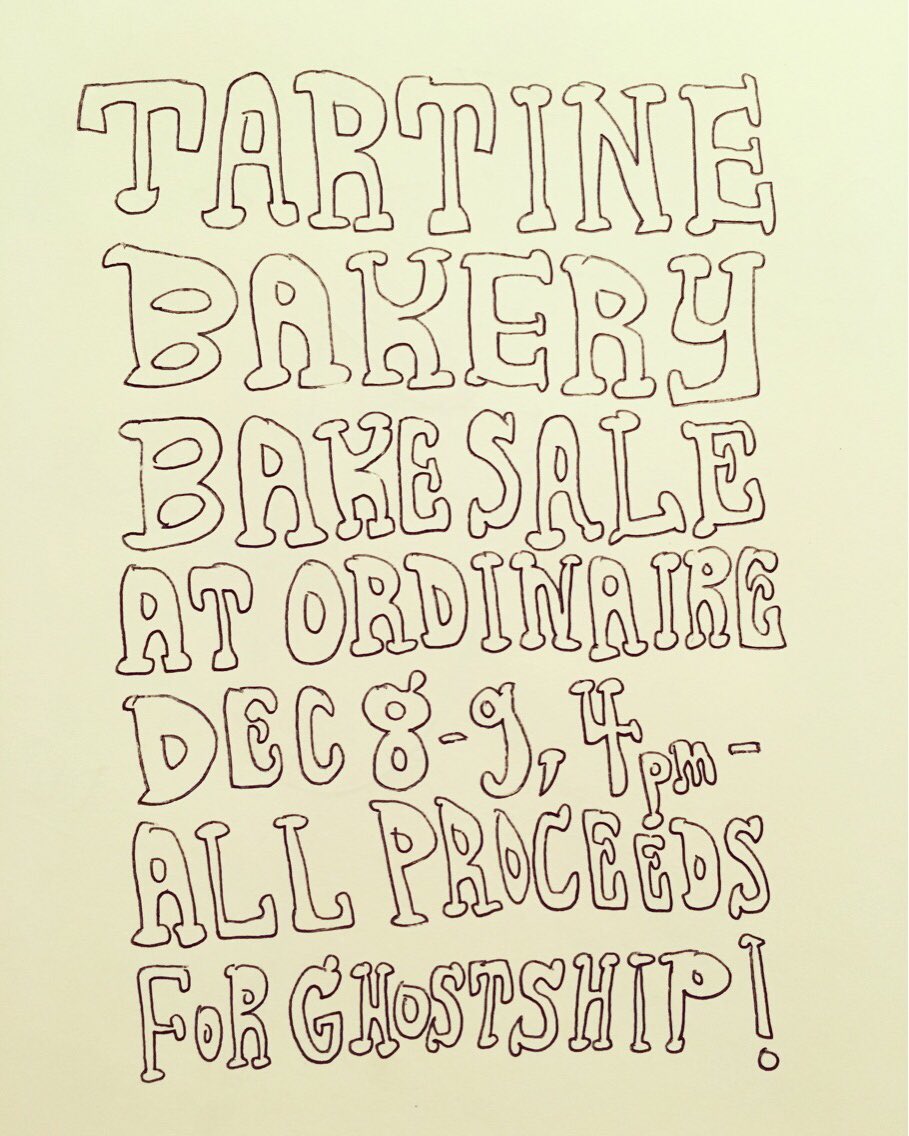 TARTINE
BAKERY
BAKE SALE
AT ORDINAIRE
DEC 8-9, 4pm-
ALL PROCEEDS
FOR GHOSTSHIP!